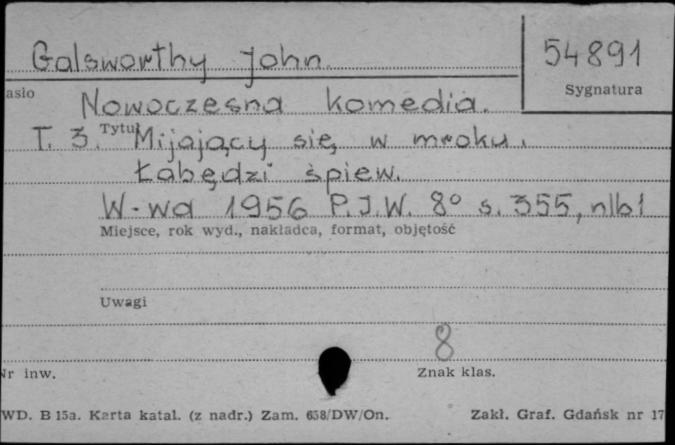 Galsworthy John
54891
Sygnatura
asło
Nowoczesna komedia.
T. 3. Tytuł Mijający się w mroku.
Łabędzi śpiew.
W-wa 1956 P.I.W. 8° s. 355, nlb1
Miejsce, rok wyd., nakładca, format, objętość
Uwagi
8
Nr inw.
Znak klas.
WD. B 15a. Karta katal. (z nadr.) Zam. 658/DW/On.
Zakł. Graf. Gdańsk nr 17